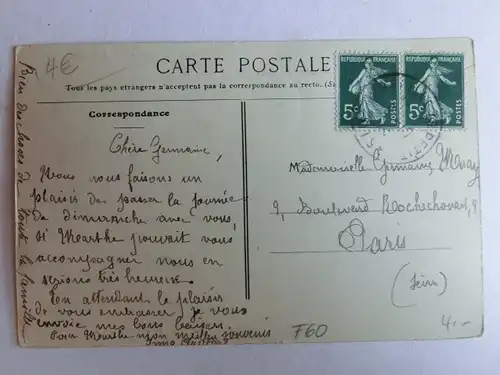 4€
CARTE POSTALE
Tous les pays etrangers n'acceptent pas la correspondance au recto. (S
REPUBLIQUE FRANÇAISE
5c
POSTES
REPUBLIQUE FRANÇAISE
5c
POSTES
Correspondance
Chère Germaine,
Nous nous faisons un
plaisir de passer la journée
de dimanche avec vous,
si Marthe pouvait vous
accompagner nous en
serions très heureux.
En attendant le plaisir
de vous embrasser je vous
envoie mes bons baisers.
Pour Marthe mon meilleur souvenir
Bien des choses de toute la famille
Mademoiselle Germaine
9, Boulevard Rochechouart, 9
Paris
(Seine)
F60
4.-